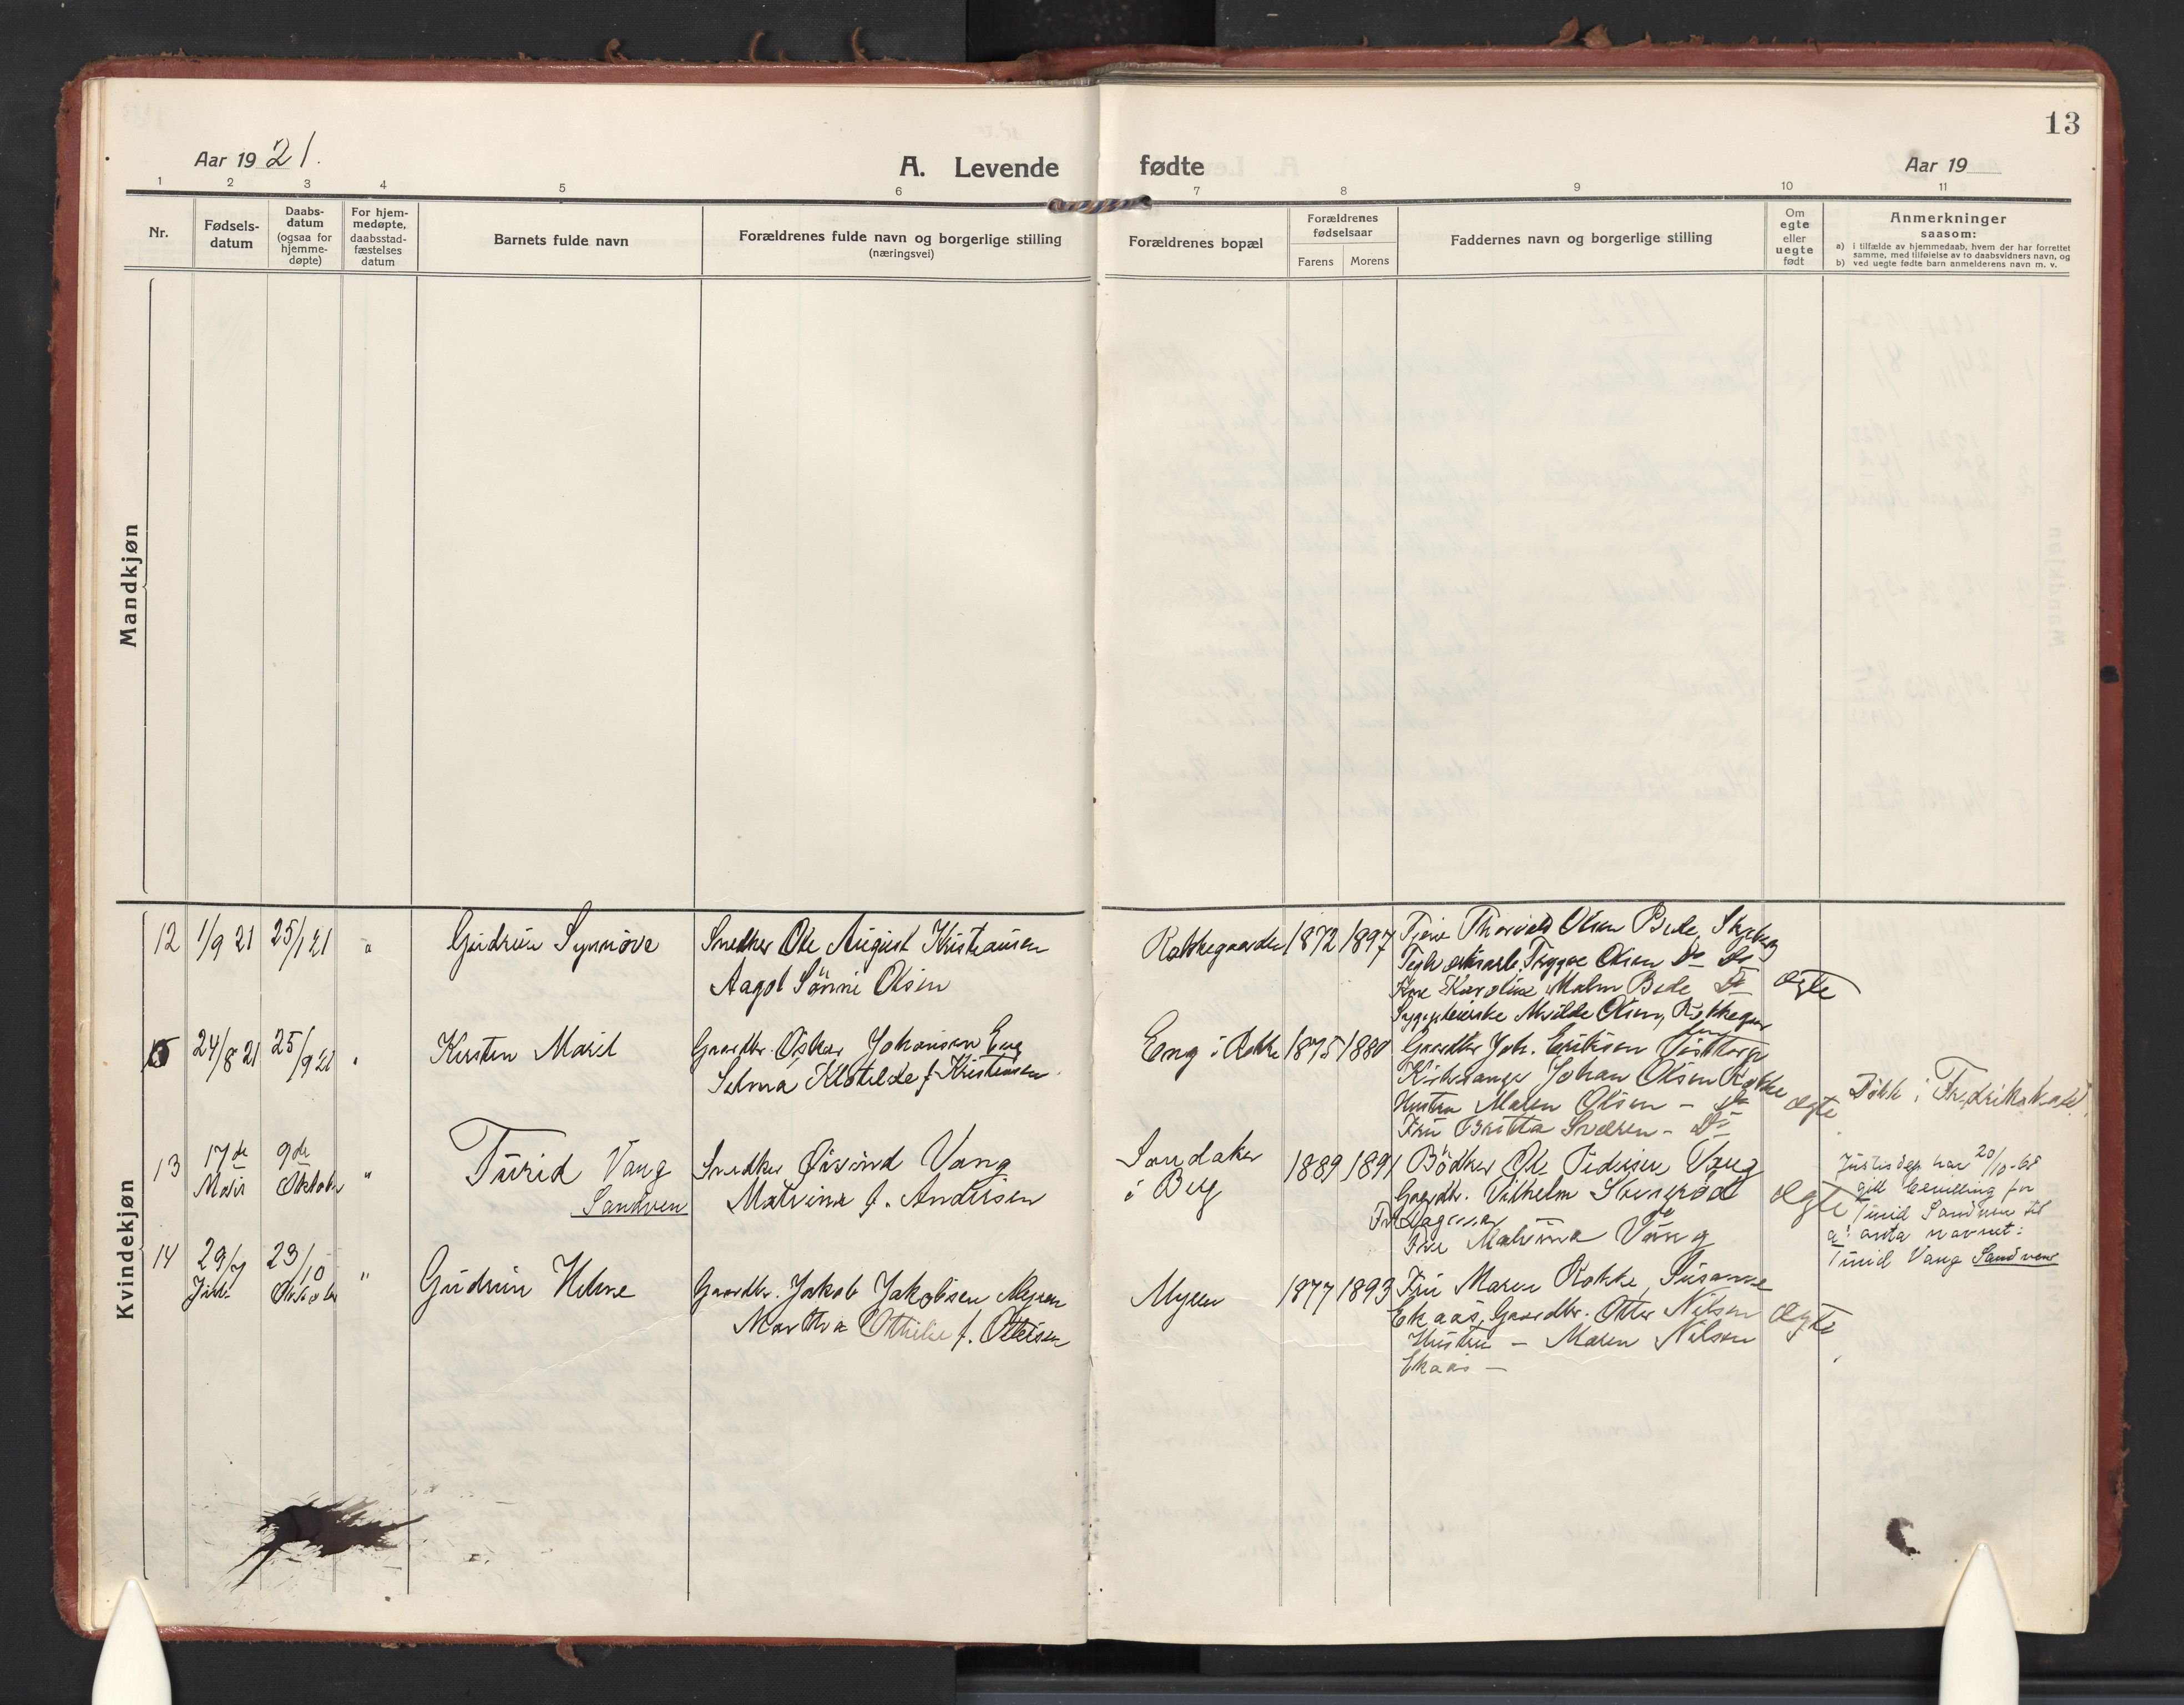 13
Aar 19 21.
A. Levende fødte
Aar 19
1 2 3 4 5 6 7 8 9 10 11
Nr.
Fødsels-
datum
Daabs-
datum
(ogsaa for
hjemme-
døpte)
For hjem-
medøpte,
daabsstad-
fæstelses
datum
Barnets fulde navn
Forældrenes fulde navn og borgerlige stilling
(næringsvei)
Forældrenes bopæl
Forældrenes
fødselsaar
Farens Morens
Faddernes navn og borgerlige stilling
Om
egte
eller
uegte
født
Anmerkninger
saasom:
a) i tilfælde av hjemmedaab, hvem der har forrettet
samme, med tilføielse av to daabsvidners navn, og
b) ved uegte fødte barn anmelderens navn m. v.
Mandkjøn
Kvindekjøn
12 1/9 21 25/ 21 " Gudrun Synnöve
Snedker Ole August Kristiansen
Aagot Sönni Olsen
Rokkegaarden 1872 1897
Thorvald Olsen Bede, Skjeberg
Trygve Olsen Do Do
Fru Karoline Malm Bede Do
Milde Olsen, Rokkegaar
den
ægte
24/8 21 25/9 21 " Kirsten Marit
Gaardbr. Oskar Johansen Eng
Selma Klotilde f. Kristiansen
Eng i Rokke 1875 1880
Gaardbr Joh. Eriksen
Kirkesanger Johan Olsen Rokke
Hustru Maren Olsen - Do
Fru Britta - Do
ægte
Döbt i Fredrikshald
13 17de Mai 9de Oktober " Turid Vang
Sandven
Snedker Öivind Vang
Malvine f. Andersen
Sandaker
i Berg
1889 1891
Bödker Ole Pedersen Vang
Gaardbr. Vilhelm
Fr. Dagmar
Fru Malvina Vang
ægte
Justisdep har 20/10-65
gitt bevilling for
Turid Sandven til
å anta navnet:
Turid Vang Sandven
14 29/7 Juli 23/10 Oktober " Gudrun Helene
Gaardbr. Jakob Jakobsen Myren
Martha Ottilie f. Ottesen
Myren 1877 1893
Fru Maren Rokke, Susanne
Ekaas, Gaardbr. Otter Nilsen
Hustru - Maren Nilsen
Ekaas -
ægte